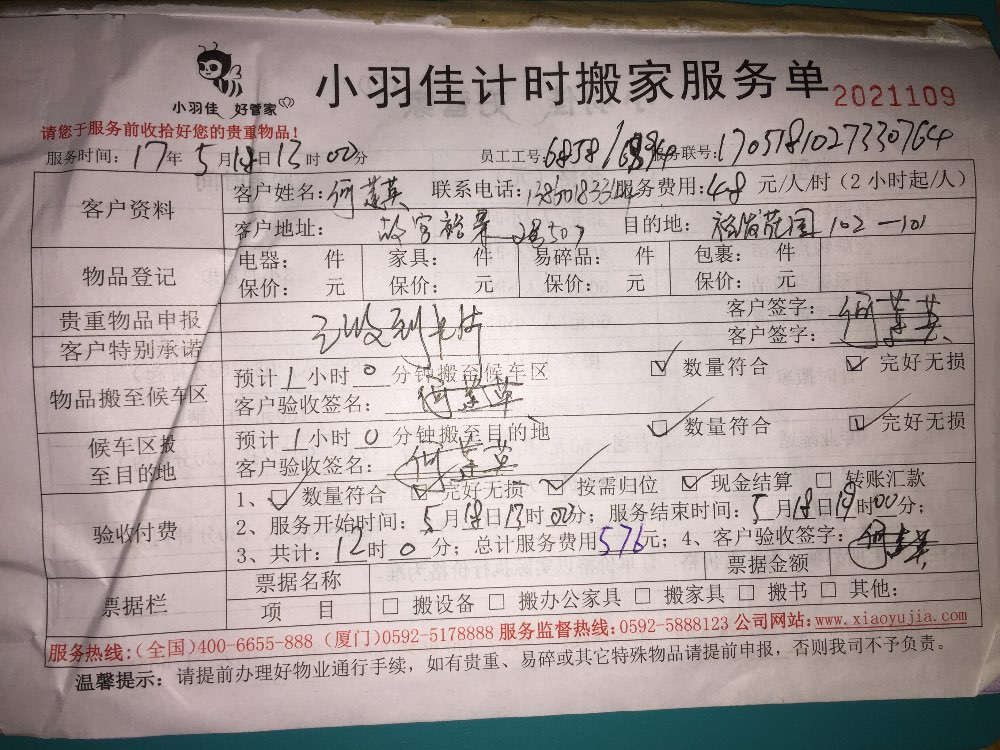 小羽佳 好管家
小羽佳计时搬家服务单 2021109
请您于服务前收拾好您的贵重物品!
服务时间: 17年 5月18日13时00分 员工工号: 6858/ 服务联号: 1705181027330764
客户资料
客户姓名: 何莲英 联系电话: 服务费用: 48 元/人/时 (2小时起/人)
客户地址: 故宫裕景 目的地: 102-101
物品登记
电器: 件 家具: 件 易碎品: 件 包裹: 件
保价: 元 保价: 元 保价: 元 保价: 元
贵重物品申报 客户签字: 何莲英
客户特别承诺 已收到卡片 客户签字:
物品搬至候车区
预计1小时0分钟搬至候车区 ☑ 数量符合 ☑ 完好无损
客户验收签名: 何莲英
候车区搬至目的地
预计1小时0分钟搬至目的地 ☑ 数量符合 ☑ 完好无损
客户验收签名: 何莲英
验收付费
1、☑ 数量符合 ☑ 完好无损 ☑ 按需归位 ☑ 现金结算 □ 转账汇款
2、服务开始时间: 5月18日13时00分; 服务结束时间: 5月18日19时00分;
3、共计: 12时0分; 总计服务费用576元; 4、客户验收签字: 何莲英
票据栏
票据名称 票据金额
项 目 □ 搬设备 □ 搬办公家具 □ 搬家具 □ 搬书 □ 其他:
服务热线: (全国)400-6655-888 (厦门)0592-5178888 服务监督热线: 0592-5888123 公司网站: www.xiaoyujia.com
温馨提示: 请提前办理好物业通行手续, 如有贵重、易碎或其它特殊物品请提前申报, 否则我司不予负责。